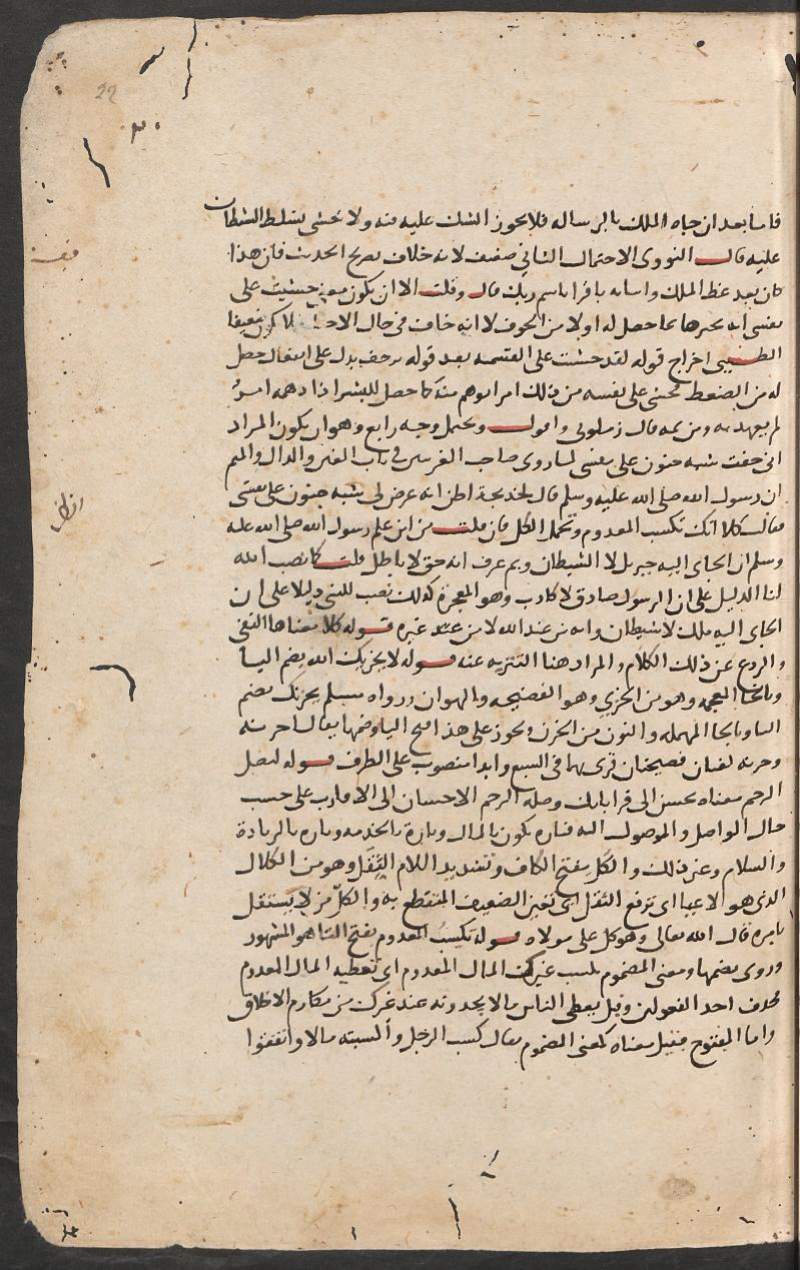 22
٣٠
فاما بعد ان جاه الملك بالرساله فلا يجوز الشك عليه فيه ولا يخشى تسلط الشيطان
عليه قال النووى الاحتمال الثانى ضعيف لانه خلاف تصريح الحديث فان هذا
كان بعد غط الملك واتيانه باقرا باسم ربك قال وقلت الا ان يكون معنى خشيت على
نفسى انه يخبرها بما حصل له اولا من الخوف لا انه خائف فى حال الاخبار فلا يكون ضعيفا
الطيبى اخراج قوله لقد خشيت على القسمه بعد قوله يرجف يدل على انفعال حصل
له من الضغط فخشى على نفسه من ذلك امرا يوهم منه كما حصل للبشر اذا دهمه امر
لم يعهد به ومن ثمه قال زملونى واقول ويحتمل وجه رابع وهو ان يكون المراد
انى خفت شبه جنون على نفسى لما روى صاحب الغريبين فى باب العين والدال والميم
ان رسول الله صلى الله عليه وسلم قال لخديجة اظن انه عرض لى شبه جنون على نفسى
فقالت كلا انك تكسب المعدوم وتحمل الكل فان قلت من اين علم رسول الله صلى الله عليه
وسلم ان الجاى اليه جبريل لا الشيطان وبم عرف انه حق لا باطل قلت كما نصب الله
لنا الدليل على ان الرسول صادق لا كاذب وهو المعجزة كذلك نصب للنبى دليلا على ان
الجاى اليه ملك لا شيطان وانه من عند الله لا من عند غيره قوله كلا معناها النفى
والردع عن ذلك الكلام والمراد هنا التنزيه عنه قوله لا يخزيك الله بضم اليا
وبالخا المعجمه وهو من الخزي وهو الفضيحه والهوان ورواه مسلم يحزنك بضم
اليا وبالحا المهمله والنون من الحزن ويجوز على هذا فتح اليا وضمها يقال احزنه
وحزنه لغتان فصيحتان قرئ بهما فى السبع وابدا منصوب على الظرف قوله لتصل
الرحم معناه تحسن الى قراباتك وصلة الرحم الاحسان الى الاقارب على حسب
حال الواصل والموصول اليه فتارة يكون بالمال وتارة بالخدمه وتارة بالزيارة
والسلام وغير ذلك والكل بفتح الكاف وتشديد اللام الثقل وهو من الكلال
الذى هو الاعيا اى ترفع الثقل اى تعين الضعيف المنقطع به والكل من لا يستقل
بامره قال الله تعالى وهو كل على مولاه قوله تكسب المعدوم بفتح التا هو المشهور
وروى بضمها ومعنى المضموم تكسب غيرك المال المعدوم اى تعطيه المال المعدوم
بحذف احد المفعولين وقيل تعطى الناس ما لا يجدونه عند غيرك من مكارم الاخلاق
واما المفتوح فقيل معناه كمعنى المضموم يقال كسب الرجل واكسبته مالا واتفقوا